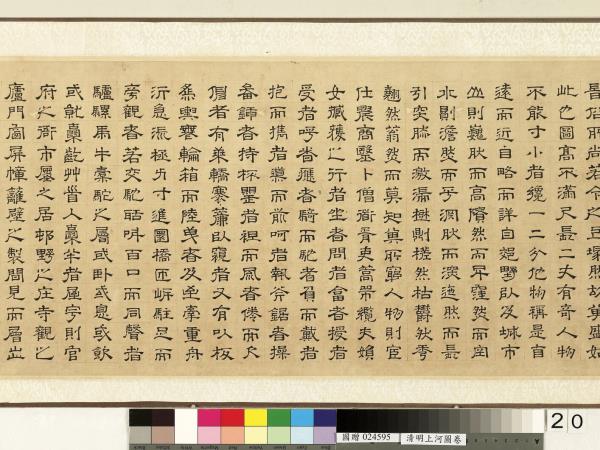 俗所尚若今之
此也圖高不滿尺長二丈有奇人物
不能寸小者纔一二分他物稱是自
遠而近自略而詳自郊野以及城市
山則巍然而高隤然而卑窪然而空
水則澹然而平淵然而深迤然而長
引突然而激湍樹則槎然枯鬱然秀
翹然蓊然而莫知其所窮人物則官
仕農商醫卜僧道胥吏篙師纜夫婦
女臧獲之行者坐者問者答者授者
受者呼者應者騎而馳者負而戴者
抱而攜者導而前呵者執斧鋸者操
畚鍤者持杯罌者袒而風者倦而欠
伸者有乘轎搴簾以窺者又有以板
為輿無輪箱而陸曳者及牽重舟
泝急流極力寸進圜橋匝岸駐足而
旁觀者若交驩助叫百口而同聲者
驢騾馬牛橐駝之屬或臥或息或飲
或就囊齕草首入囊半者屋宇則官
府之衙市廛之居邨野之庄寺觀之
廬門窗屏幛籬壁之製間見而層出
國贈 024595
清明上河圖卷
20